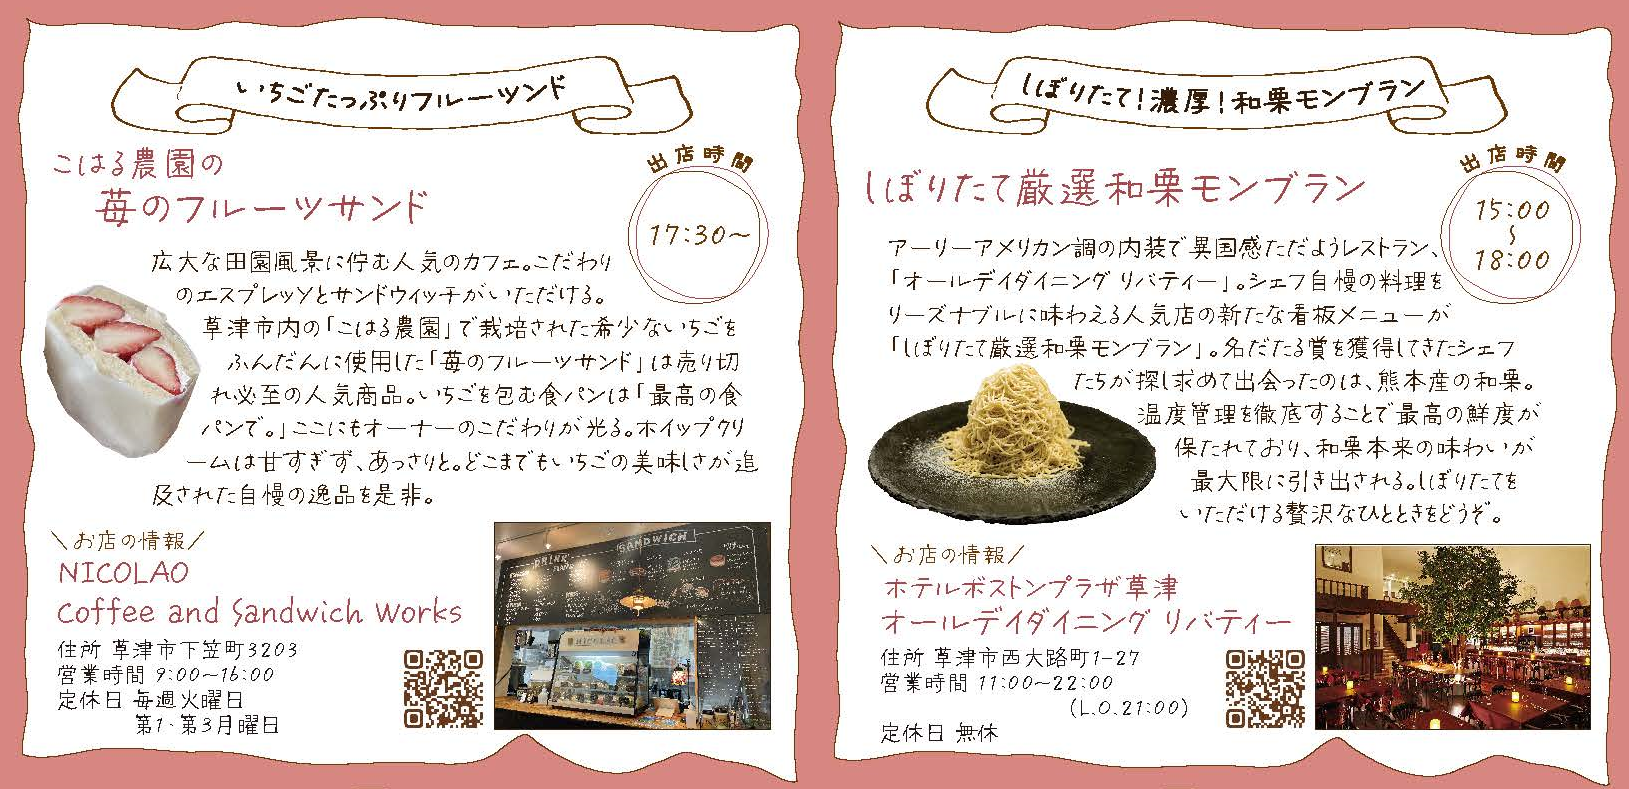 いちごたっぷりフルーツンド
こはる農園の
苺のフルーツサンド
出店時間
17:30〜
広大な田園風景に佇む人気のカフェ。こだわり
のエスプレッソとサンドウィッチがいただける。
草津市内の「こはる農園」で栽培された希少ないちごを
ふんだんに使用した「苺のフルーツサンド」は売り切
れ必至の人気商品。いちごを包む食パンは「最高の食
パンで。」ここにもオーナーのこだわりが光る。ホイップクリ
ームは甘すぎず、あっさりと。どこまでもいちごの美味しさが追
及された自慢の逸品を是非。
＼お店の情報／
NICOLAO
Coffee and Sandwich Works
住所 草津市下笠町3203
営業時間 9:00〜16:00
定休日 毎週火曜日
第1、第3月曜日
DRINK
SANDWICH
NICOLAO
しぼりたて!濃厚!和栗モンブラン
しぼりたて厳選和栗モンブラン
出店時間
15:00
〜
18:00
アーリーアメリカン調の内装で異国感ただようレストラン、
「オールデイダイニング リバティー」。シェフ自慢の料理を
リーズナブルに味わえる人気店の新たな看板メニューが
「しぼりたて厳選和栗モンブラン」。名だたる賞を獲得してきたシェフ
たちが探し求めて出会ったのは、熊本産の和栗。
温度管理を徹底することで最高の鮮度が
保たれており、和栗本来の味わいが
最大限に引き出される。しぼりたてを
いただける贅沢なひとときをどうぞ。
＼お店の情報／
ホテルボストンプラザ草津
オールデイダイニング リバティー
住所 草津市西大路町1-27
営業時間 11:00〜22:00
(L.O.21:00)
定休日 無休